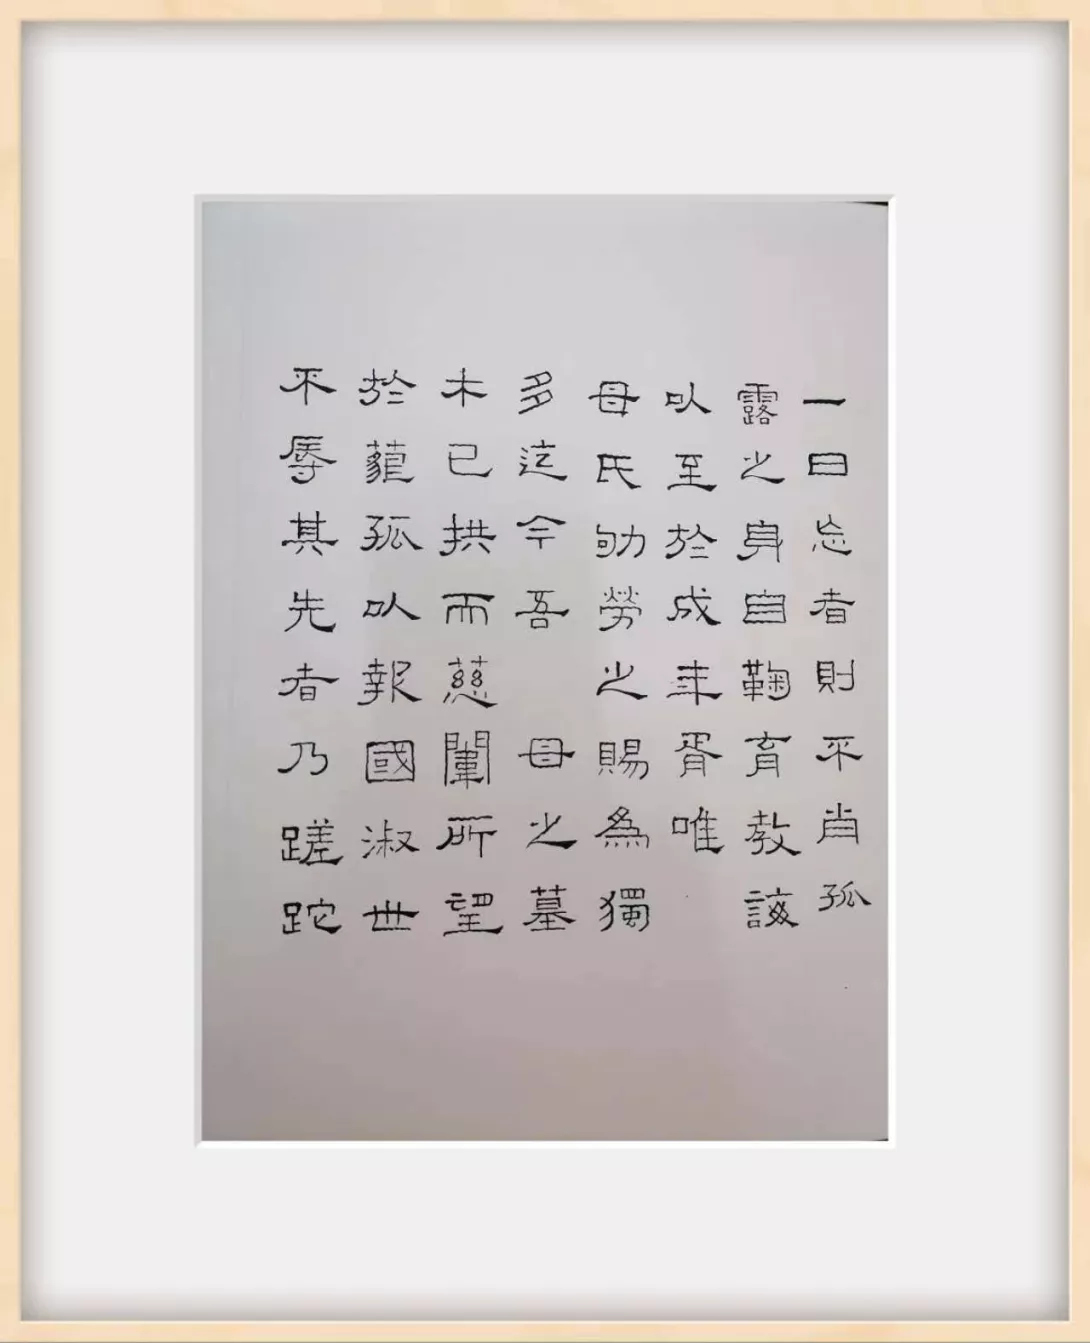 一日忘者則不肖孤
露之身自鞠育教誨
以至於成年胥唯
母氏劬勞之賜為獨
多迄今吾 母之墓
木已拱而慈闈所望
於藐孤以報國淑世
不辱其先者乃蹉跎